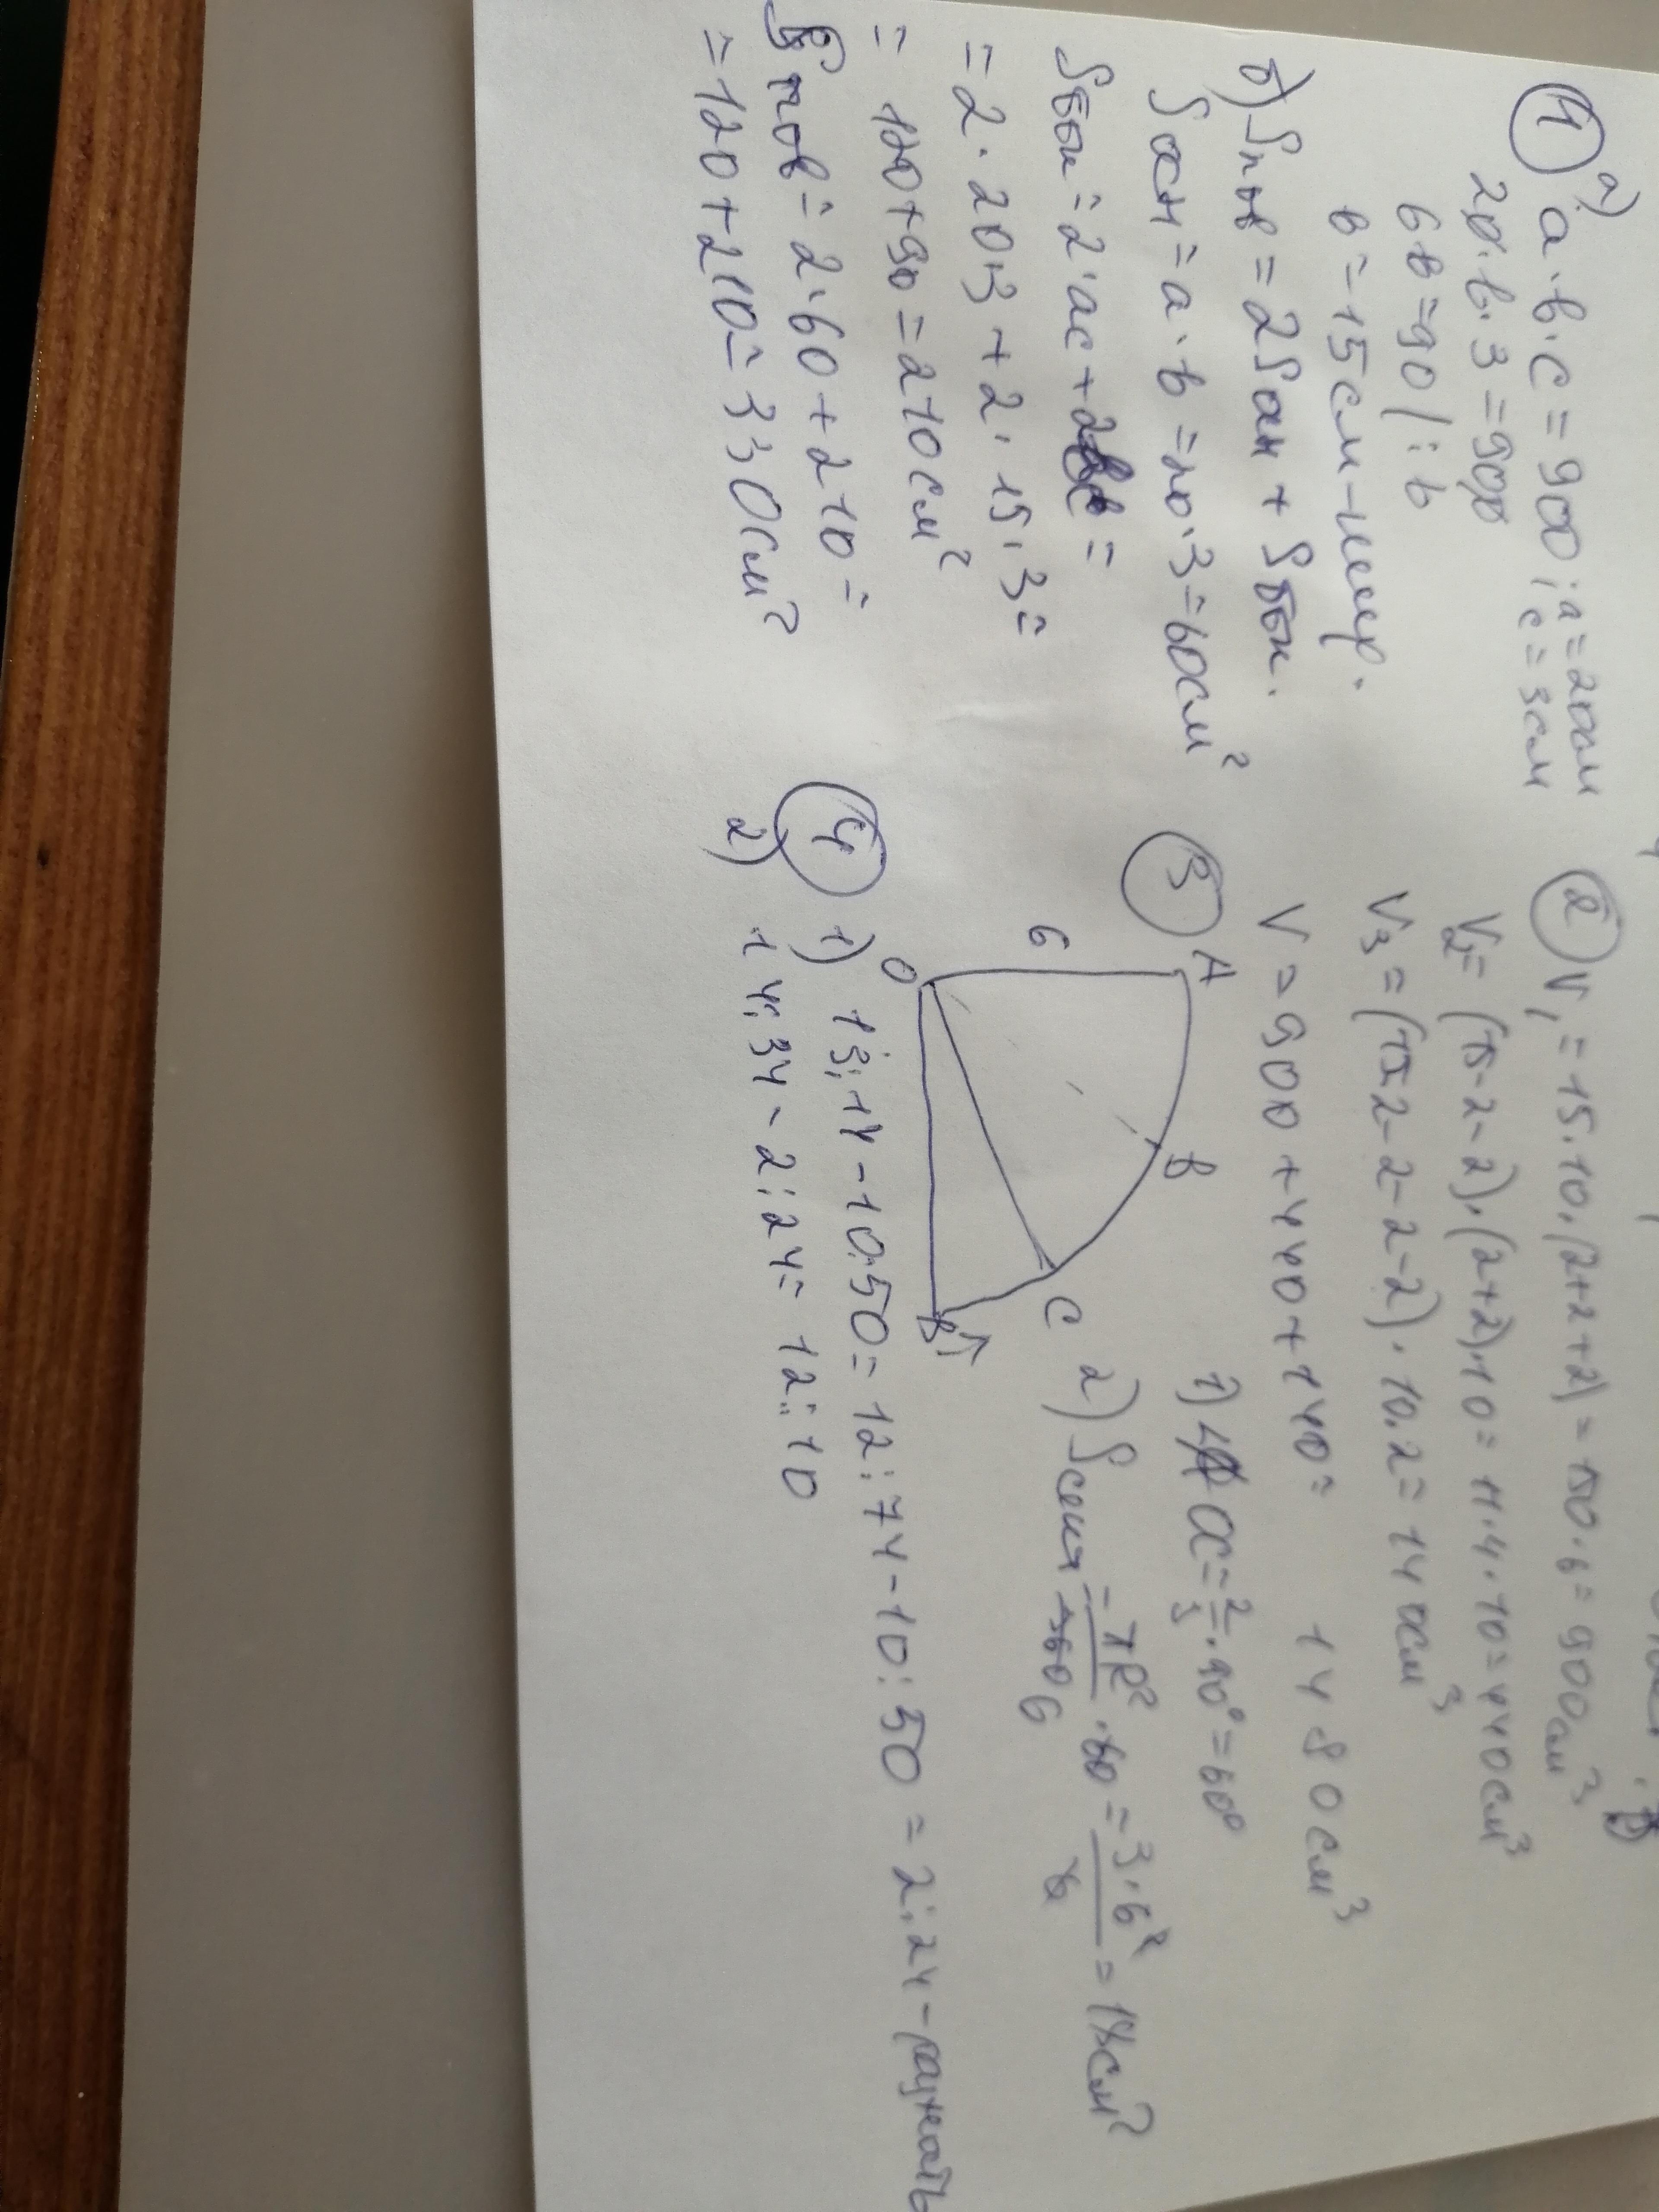 1 а) a·b·c = 900; a = 20см
c = 3см
20·b·3 = 900
6b = 90 |: 6
b = 15 см - шир.
б) Sпов = 2Sосн + Sбок.
Sосн = a·b = 20·3 = 60см²
Sбок = 2·ac + 2bc =
= 2·20·3 + 2·15·3 =
= 120 + 90 = 210см²
Sпов = 2·60 + 210 =
= 120 + 210 = 330см²
2 V₁ = 15·10·(2+2+2) = 150·6 = 900см³
V₂ = (15-2-2)·(2+2)·10 = 11·4·10 = 440см³
V₃ = (15-2-2-2-2)·10·2 = 140см³
V = 900 + 440 + 140 = 1480см³
3 A B C O 6
1) ∠ = 2/3 · 90° = 60°
2) Sсект = πR²/360 · 60 = 3·6²/6 = 18см²
4 1) 13:14 - 10:50 = 12:74 - 10:50 = 2:24 - разность
2) 14:34 - 2:24 = 12:10